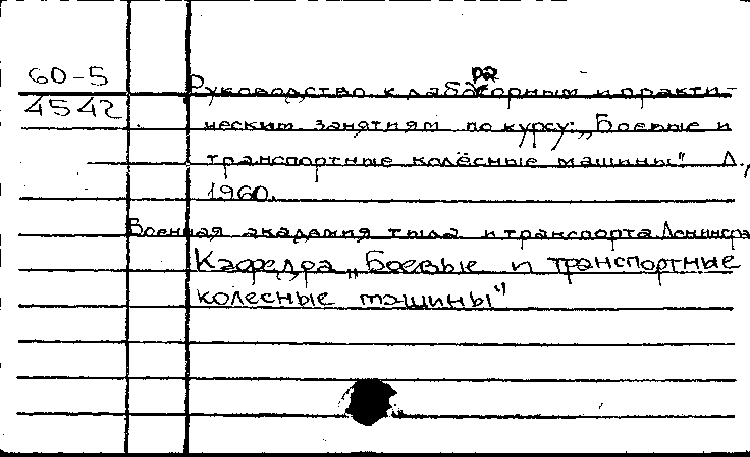 60-5
4542
Руководство к лабораторным и практи-
ческим занятиям по курсу: „Боевые и
транспортные колёсные машины". Л.,
1960.
Военная академия тыла и транспорта. Ленингра
Кафедра „Боевые и транспортные
колесные машины"